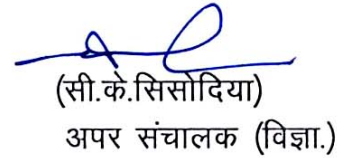 (सी.के.सिसोदिया)
अपर संचालक (विज्ञा.)